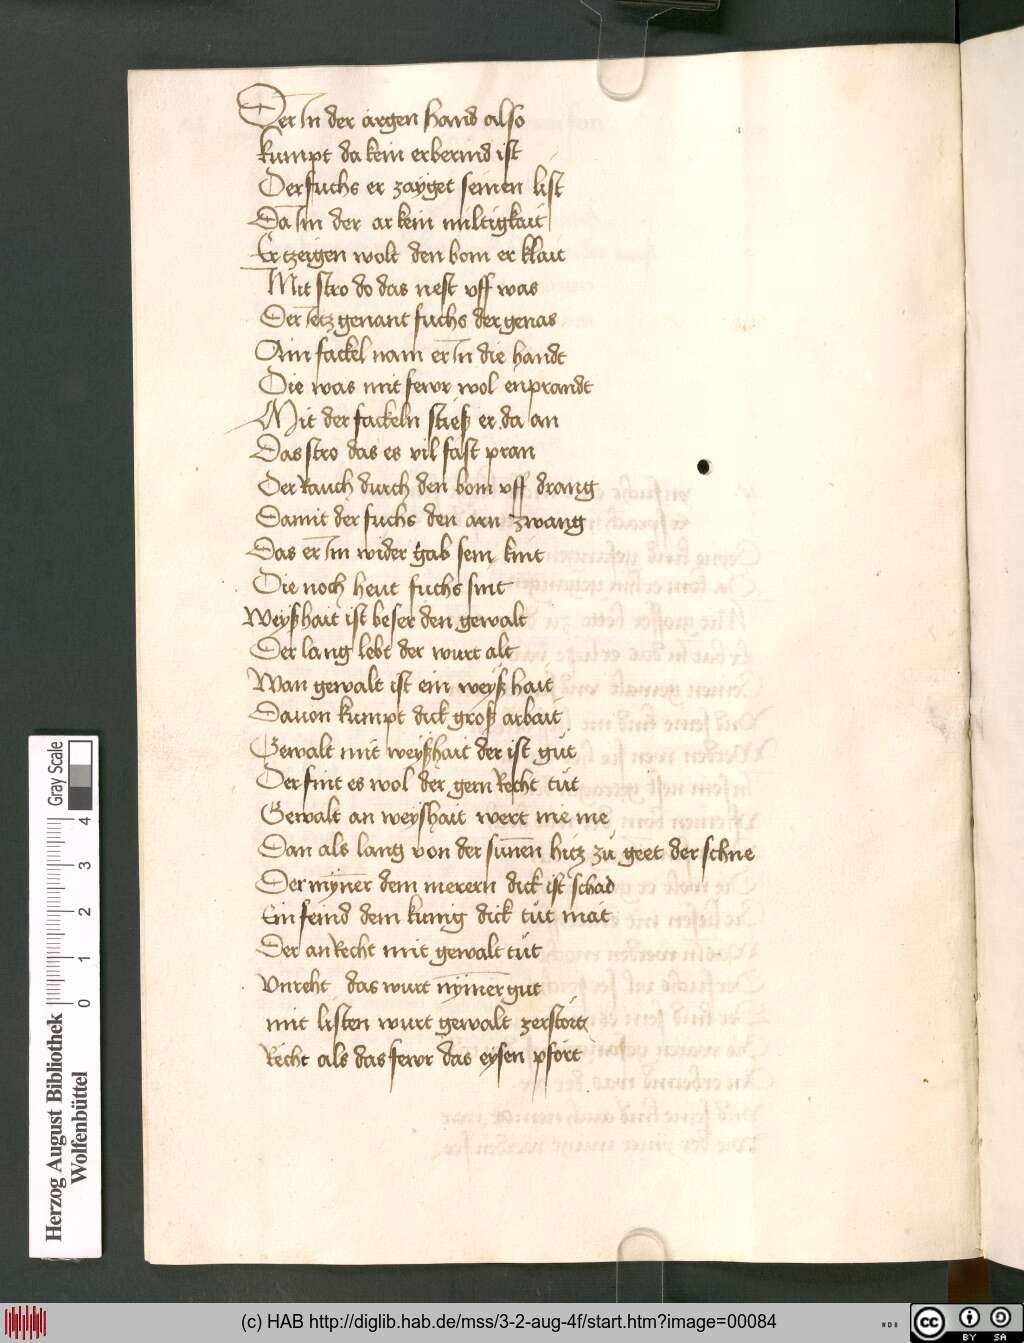 Der In der argen hand also
kumpt da kein erbermd ist
Der fuchs er zayget seinen list
Da Im der ar kein miltigkait
Er tzeigen wolt den bom er klait
Mit stro do das nest vff was
Der Ietz genant fuchs der genas
Ain fackel nam er In die handt
Die was mit fewr wol enprandt
Mit der fackeln stieß er da an
Das stro das es vil fast pran
Der Rauch durch den bom vff drang
Damit der fuchs den arn zwang
Das er Im wider gab sein kint
Die noch heut fuchs sint
Weyßhait ist beser den gewalt
Der lang lebt der wurt alt
Wan gewalt ist ein weyßhait
Dauon kumpt dick groß arbait
Gewalt mit weyßhait der ist gut
Der fint es wol der gern Recht tut
Gewalt an weyshait wert nie me
Dan als lang von der sunen hitz zu geet der schne
Der myner dem merern dick ist schad
Ein feind dem kunig dick tut mat
Der an Recht mit gewalt tut
Vnreht das wurt nymer gut
mit listen wurt gewalt zerstort
Recht als das fewr das eysen pfort
Gray Scale
0 1 2 3 4
Herzog August Bibliothek
Wolfenbüttel
(c) HAB http://diglib.hab.de/mss/3-2-aug-4f/start.htm?image=00084
cc BY SA